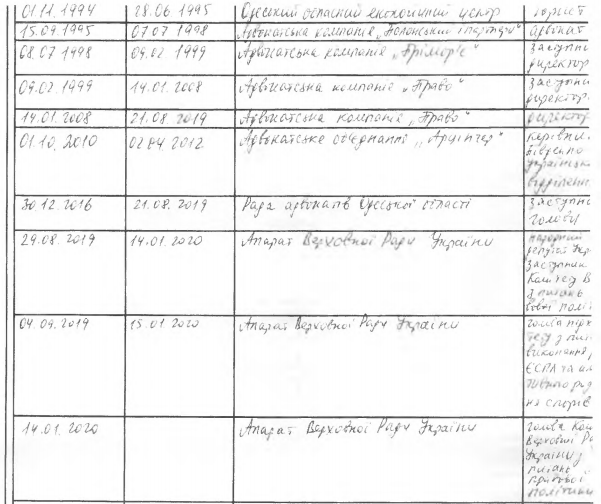 01.11.1994 28.06.1995 Одеський обласний економічний центр юрист
15.09.1995 07.07.1998 Адвокатська компанія „ і партнери" адвокат
08.07.1998 09.02.1999 Адвокатська компанія „Примор'є" заступни
директор
09.02.1999 14.01.2008 Адвокатська компанія „Право" заступни
директор.
14.01.2008 21.08.2019 Адвокатська компанія „Право" директор
01.10.2010 02.04.2012 Адвокатське об'єднання „Арцінгер" керівни
українськ
відділенн
30.12.2016 21.08.2019 Рада адвокатів Одеської області заступн
голови
29.08.2019 14.01.2020 Апарат Верховної Ради України народний
депутат Укр
заступник
Комітету В
з питань
вової політ
04.09.2019 15.01.2020 Апарат Верховної Ради України голова підк
тету з пит
виконання
ЄСПЛ та ал
тивного роз
ня спорів
14.01.2020 Апарат Верховної Ради України голова Ком
Верховної Ра
України з
питань
правової
політики